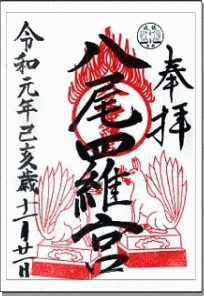 奉拝
八尾四維宮
令和元年己亥歳十一月廿一日